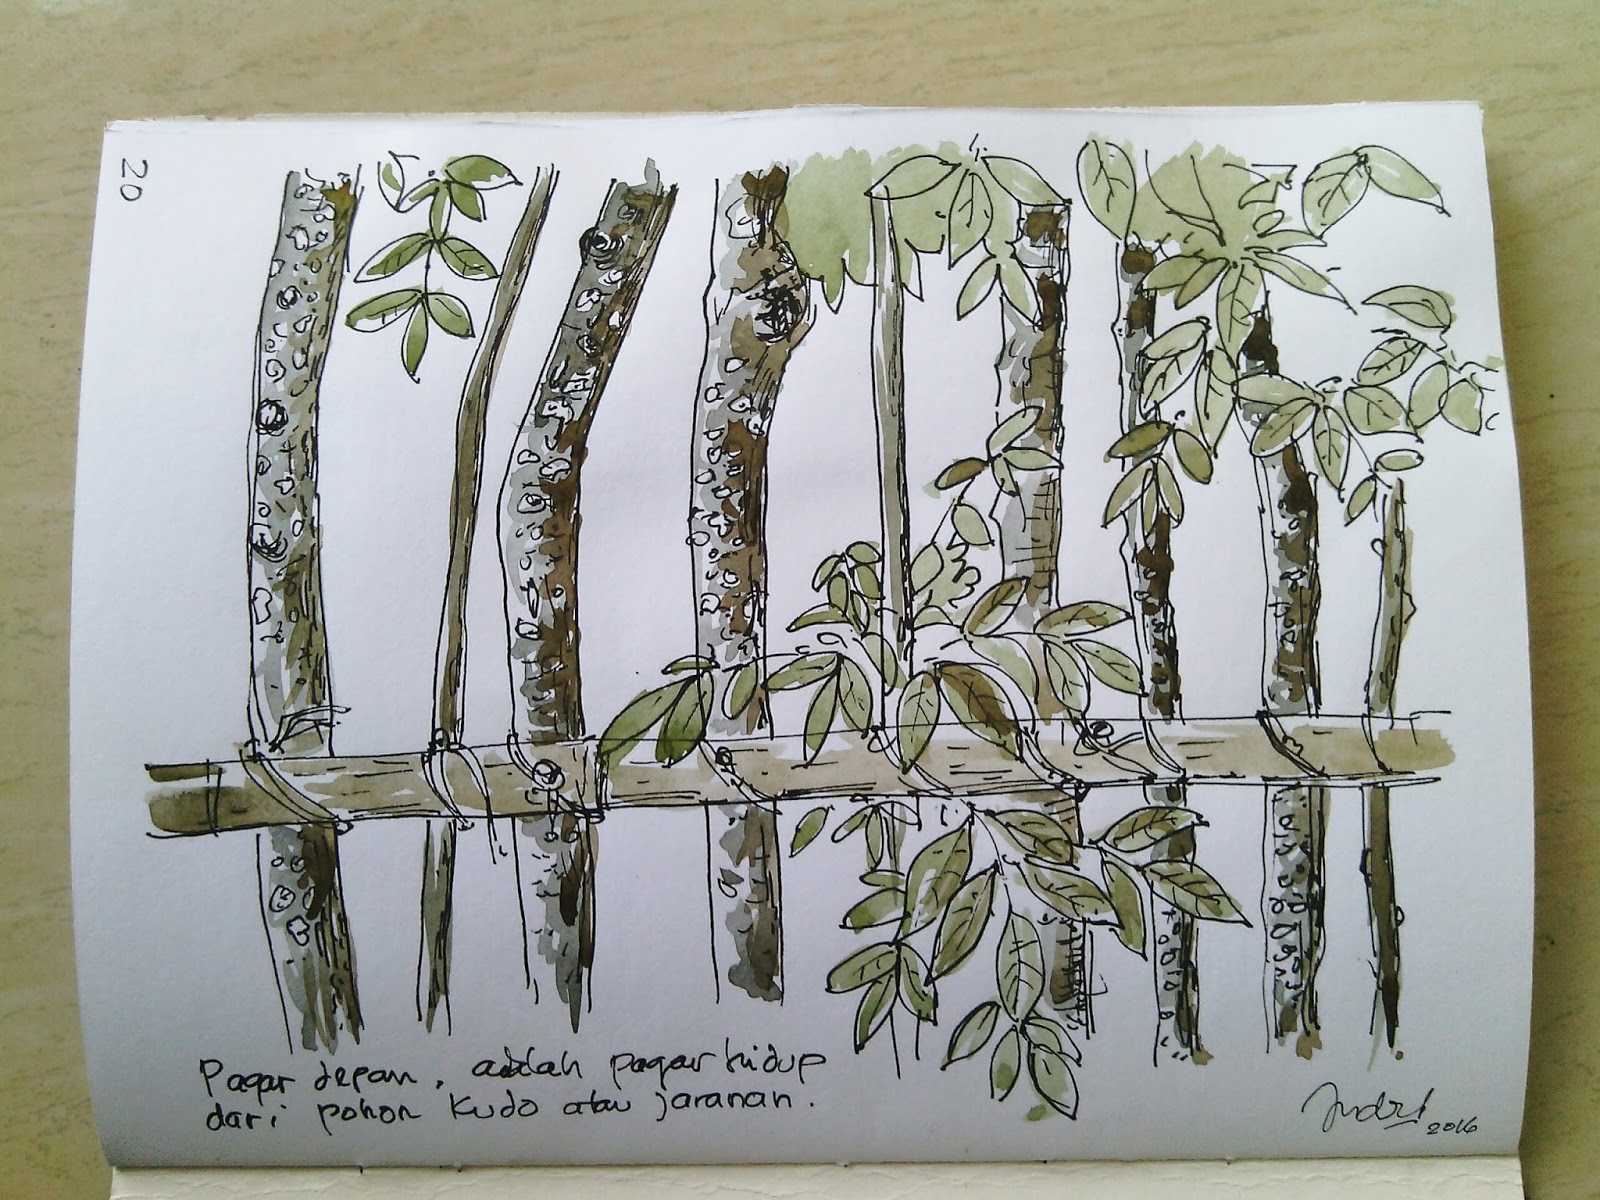 20
Pagar depan, adalah pagar hidup
dari pohon Kudo atau jaranan.
2016